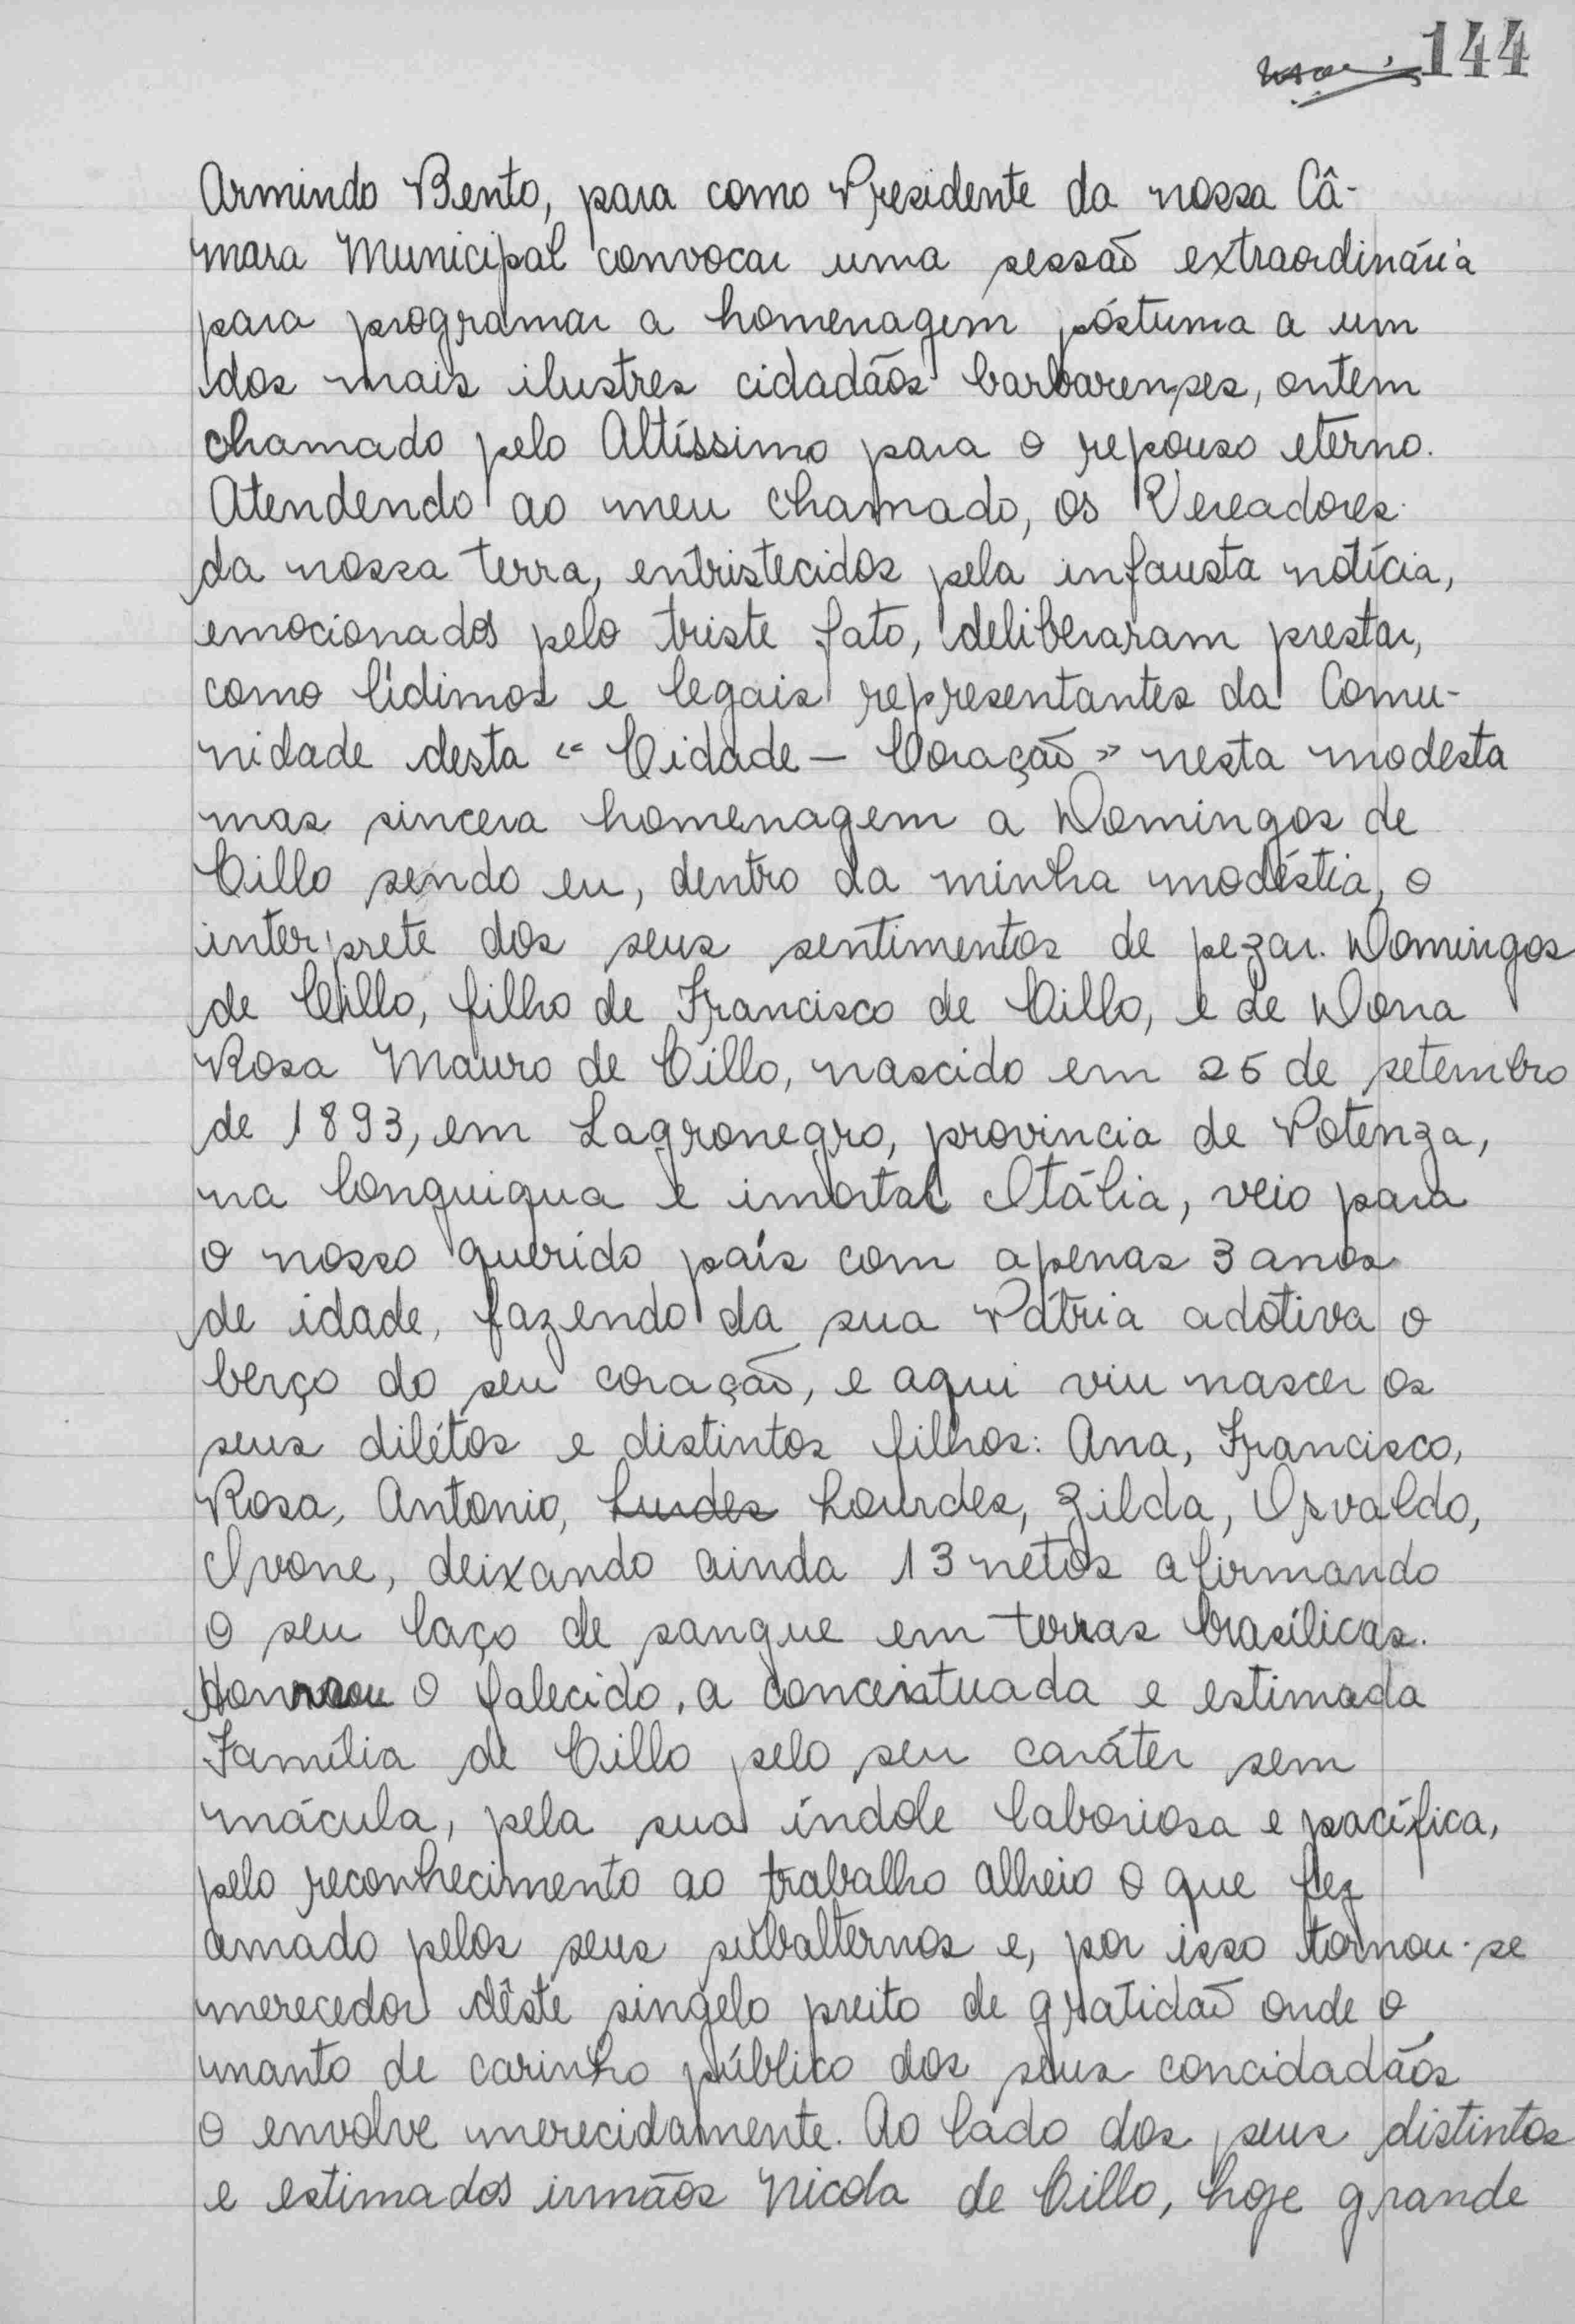 144
Armindo Bento, para como Presidente da nossa Câ-
mara Municipal convocar uma sessão extraordinária
para programar a homenagem póstuma a um
dos mais ilustres cidadãos barbarenses, ontem
chamado pelo Altíssimo para o repouso eterno.
Atendendo ao meu chamado, os Vereadores
da nossa terra, entristecidos pela infausta notícia,
emocionados pelo triste fato, deliberaram prestar,
como lídimos e legais representantes da Comu-
nidade desta "Cidade - Coração" nesta modesta
mas sincera homenagem a Domingos de
Cillo sendo eu, dentro da minha modéstia, o
interprete dos seus sentimentos de pezar. Domingos
de Cillo, filho de Francisco de Cillo, e de Dona
Rosa Mauro de Cillo, nascido em 25 de setembro
de 1893, em Lagronegro, provincia de Potenza,
na longuiqua e imortal Itália, veio para
o nosso querido país com apenas 3 anos
de idade, fazendo da sua Pátria adotiva o
berço do seu coração, e aqui viu nascer os
seus dilétos e distintos filhos: Ana, Francisco,
Rosa, Antonio, Lurdes Lourdes, Zilda, Osvaldo,
Ivone, deixando ainda 13 netos afirmando
o seu laço de sangue em terras brasílicas.
Honrou o falecido, a conceituada e estimada
Família de Cillo pelo seu caráter sem
mácula, pela sua índole laboriosa e pacífica,
pelo reconhecimento ao trabalho alheio o que fez
amado pelos seus subalternos e, por isso tornou-se
merecedor dêste singelo preito de gratidão onde o
manto de carinho público dos seus concidadãos
o envolve merecidamente. Ao lado dos seus distintos
e estimados irmãos Nicola de Cillo, hoje grande